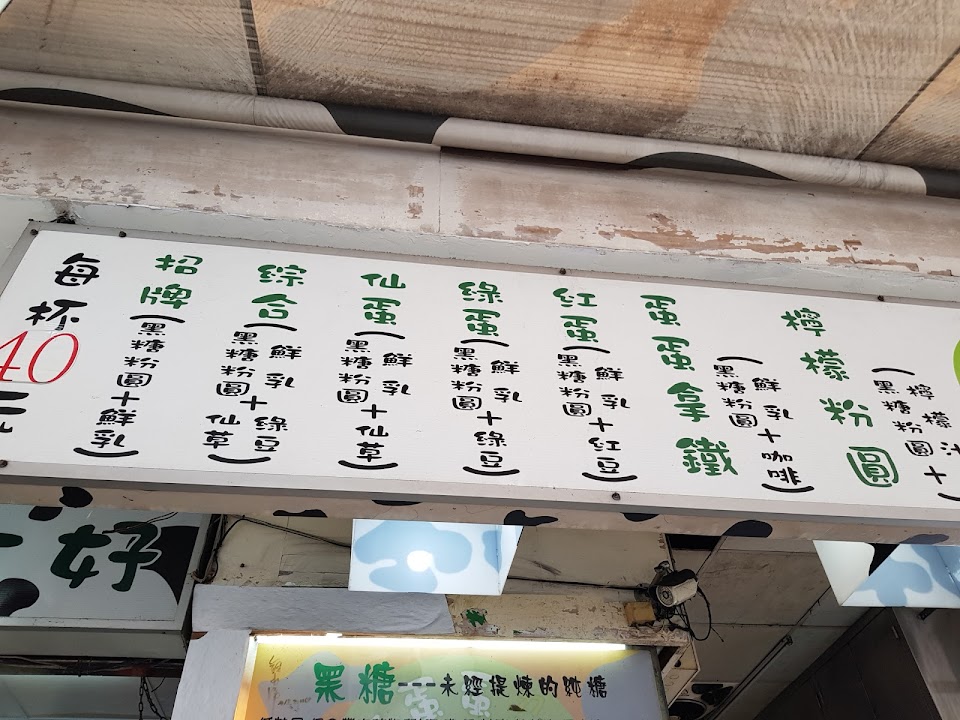 每杯
40
元
招牌
(黑糖粉圓+鮮乳)
綜合
(黑糖粉圓+仙草)
鮮乳+綠豆
仙蛋
(黑糖粉圓
鮮乳+仙草)
綠蛋
(黑糖粉圓
鮮乳+綠豆)
紅蛋
(黑糖粉圓
鮮乳+紅豆)
蛋蛋拿鐵
(黑糖粉圓
鮮乳+咖啡)
檸檬粉圓
(黑糖粉圓
檸檬汁+
好
黑糖---未經提煉的純糖